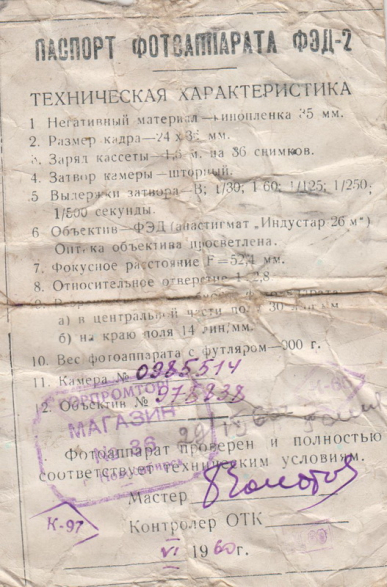 ПАСПОРТ ФОТОАППАРАТА ФЭД-2
ТЕХНИЧЕСКАЯ ХАРАКТЕРИСТИКА
1 Негативный материал—кинопленка 35 мм.
2. Размер кадра—24 х мм.
3. Заряд кассеты— м. на 36 снимков.
4. Затвор камеры—шторный.
5 Выдержки затвора—В; 1/30; 1/60; 1/125; 1/250,
1/500 секунды.
6 Объектив—ФЭД (анастигмат „Индустар-26 м")
Оптика объектива просветлена.
7. Фокусное расстояние F=52,4 мм.
8. Относительное отверстие 1:2,8
9
а) в центральной части поля 30
б) на краю поля 14 лин/мм.
10. Вес фотоаппарата с футляром— г.
11. Камера № 0985514
2. Объектив № 975838
МАГАЗИН
№ 36
Фотоаппарат проверен и полностью
соответствует техническим условиям.
Мастер
К-97
Контролер ОТК
VI 1960г.